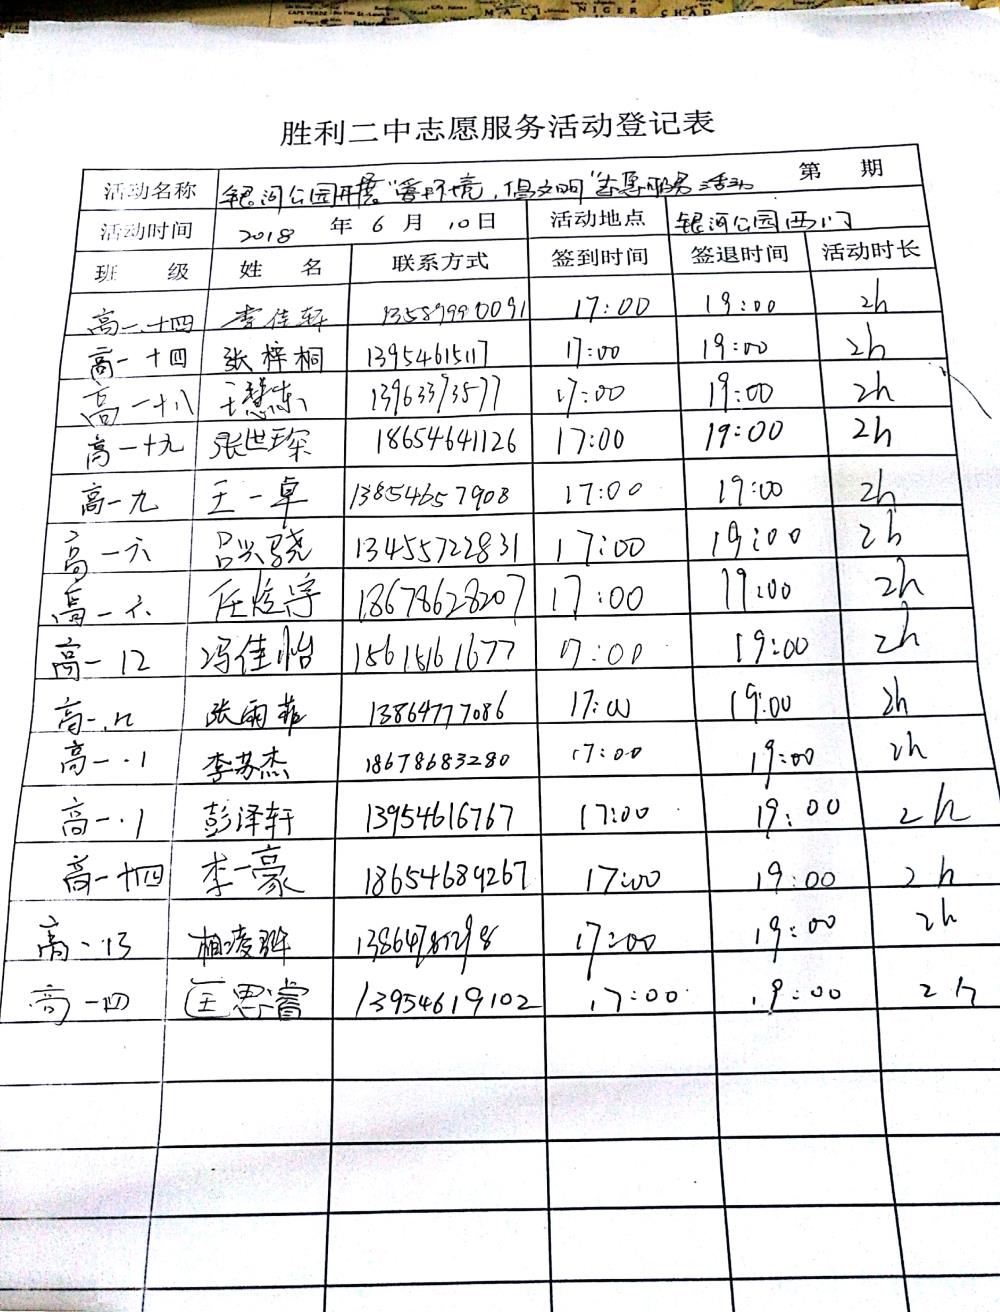 CAPE VERDE
MALI NIGER CHAD
胜利二中志愿服务活动登记表
活动名称 银河公园开展“ 环境,倡文明”志愿服务活动 第 期
活动时间 2018 年 6 月 10 日 活动地点 银河公园西门
班 级 姓 名 联系方式 签到时间 签退时间 活动时长
高一.十四 李佳轩 13589990091 17:00 19:00 2h
高一十四 张梓桐 13954615117 17:00 19:00 2h
高一十八 王慧东 13963373577 17:00 19:00 2h
高一十九 张世琛 18654641126 17:00 19:00 2h
高一九 王一卓 13854657908 17:00 19:00 2h
高一六 吕兴骁 13455722831 17:00 19:00 2h
高一六 任炫宇 18678628207 17:00 19:00 2h
高一12 冯佳怡 15615161677 17:00 19:00 2h
高一.九 张雨菲 13864777086 17:00 19:00 2h
高一.1 李苏杰 18678683280 17:00 19:00 2h
高一.1 彭泽轩 13954616767 17:00 19:00 2h
高一十四 李一豪 18654689267 17:00 19:00 2h
高一.13 相凌 17:00 19:00 2h
高一四 匡思睿 13954619102 17:00 19:00 2h